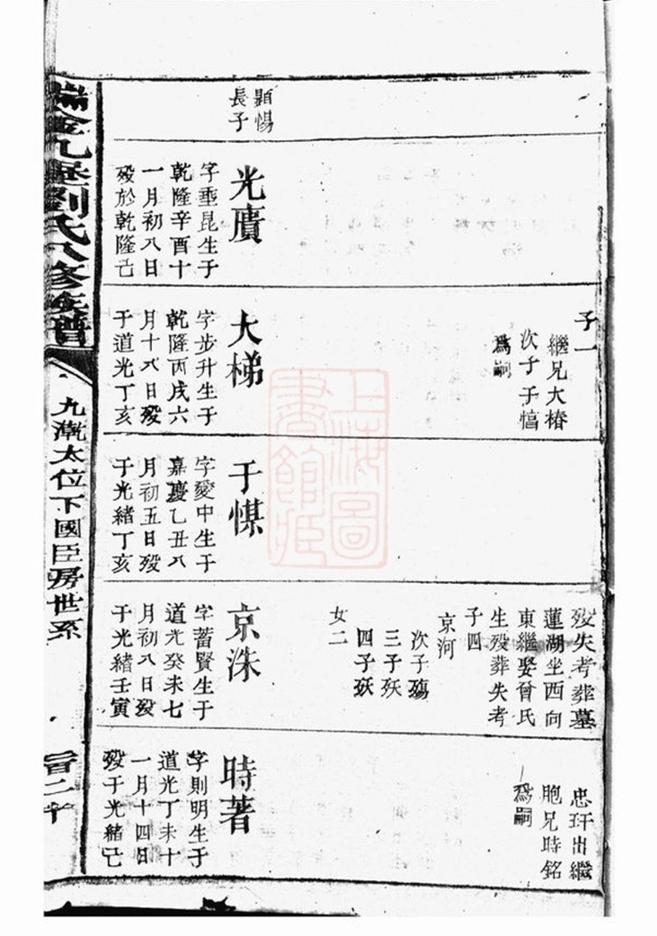 顯惕
長子
光賡
字垂昆生于
乾隆辛酉十
一月初八日
殁於乾隆己
子一
繼兄大椿
次子子
為嗣
大梯
字步升生于
乾隆丙戌六
月十八日殁
于道光丁亥
于
字愛中生于
嘉慶乙丑八
月初五日殁
于光緒丁亥
殁失考葬墓
蓮湖坐西向
東繼娶曾氏
生殁葬失考
子四
京河
次子殤
三子殀
四子殀
女二
京洙
字蓄賢生于
道光癸未七
月初八日殁
于光緒壬寅
忠玕出繼
胞兄時銘
為嗣
時著
字則明生于
道光丁未十
一月十四日
殁于光緒己
瑞金九
劉氏八修族譜
九
太位下國臣房世系
上海圖
書館藏